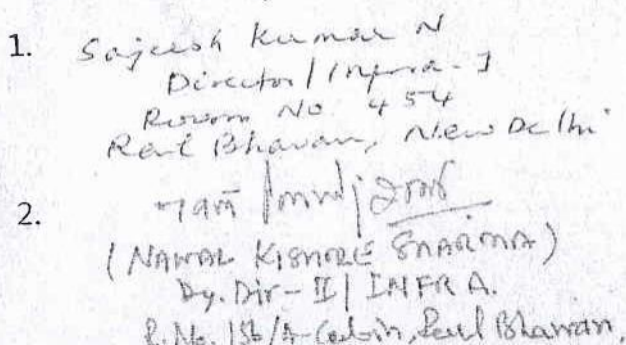 1. Sajeesh Kumar N
Director/Infra-I
Room No 454
Rail Bhavan, New Delhi
2.
(NAWAL KISHORE SHARMA)
Dy. Dir-II/INFRA.
R.No. 156/A-Cabin, Rail Bhawan,